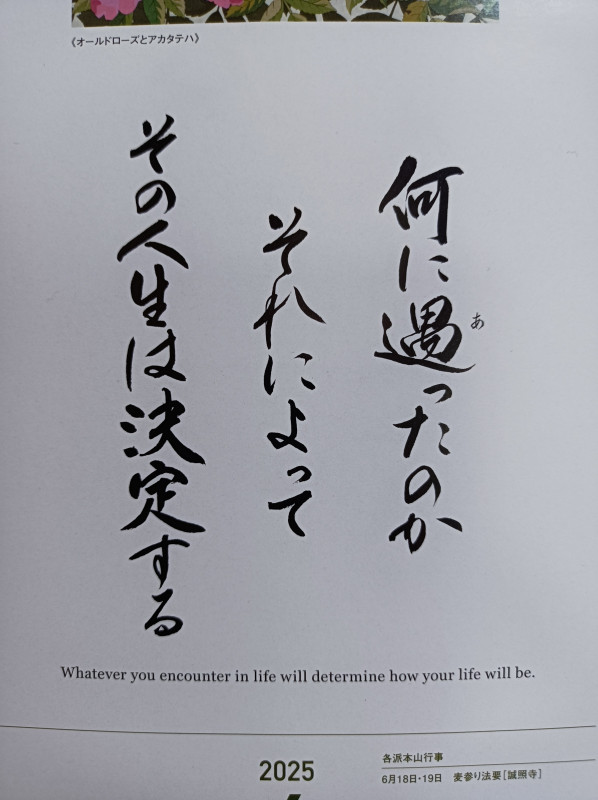 《オールドローズとアカタテハ》
何に過ったのか
あ
それによって
その人生は決定する
Whatever you encounter in life will determine how your life will be.
2025
各派本山行事
6月18日・19日 麦参り法要［誠照寺］